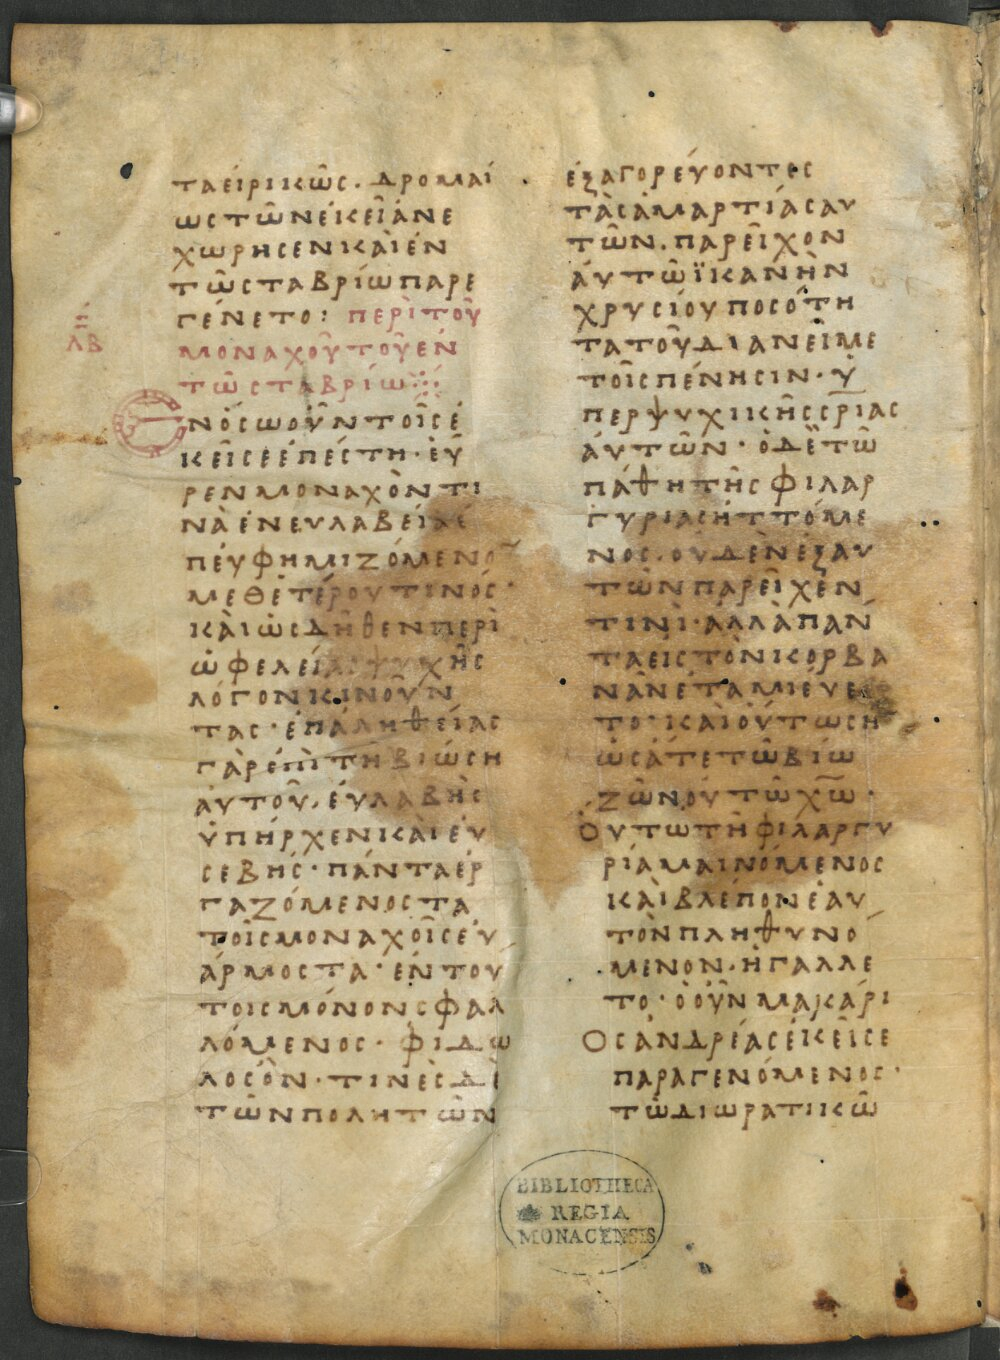 ταεἰρικῶς. δρομαί
ως τῶν ἐκεῖ ἀνε
χώρησεν καὶ ἐν
τῶ σταβρίω παρε
γένετο: περὶ τοῦ
μοναχοῦ τοῦ ἐν
τῶ σταβρίω
λβ
Ἐνόσω οὖν τοῖς ἐ
κεῖσε ἐπέστη· εὗ
ρεν μοναχὸν τι
νὰ ἐν ευλαβεία ἐ
πευφημιζόμενον
μεθ ἑτέρου τινός·
καὶ ὡς δῆθεν περὶ
ὠφελείας ψυχῆς
λόγον κινοῦν
τας· ἐπ ἀληθείας
γὰρ ἐπὶ τῆ βιώση
αὐτοῦ, εὐλαβὴς
ὑπῆρχεν καὶ εὐ
σεβής· πάντα ἐρ
γαζόμενος τα
τοῖς μοναχοῖς εὐ
άρμοστα· ἐν του
τοις μόνον σφαλ
λόμενος· φιδω
λὸς ὸν· τινὲς δὲ
τῶν πολητῶν
ἐξαγορέυοντες
τὰς ἁμαρτίας αυ
τῶν. παρεῖχον
ἀυτῶ ϊκανὴν
χρυσίου ποσότη
τα τοῦ διανεῖμε
τοῖς πένησιν· ὑ
περ ψυχικῆς σρίας
ἀυτῶν· ὁ δὲ τῶ
πάθη τῆς φιλαρ
γυρίας ἡττόμε
νος. οὐδὲν ἐξ αυ
τῶν παρεῖχέν
τινὶ· ἀλλὰ πάν
τα εἰς τὸν κορβα
νὰν ἐταμιεύε
το· καὶ οὕτως ἠ
ὡς ἅτε τῶ βίω
ζῶν ὀυ τῶ χω·
Οὕτω τῆ φιλαργυ
ρία μαινόμενος
καὶ βλέπον ἑαυ
τὸν πληθυνό
μενον. ἠγάλλε
το· ὁ οὖν μακάρι
Ος ἀνδρέας ἐκεῖσε
παραγενόμενος·
τῶ διωρατικῶ
BIBLIOTHECA
REGIA
MONACENSIS